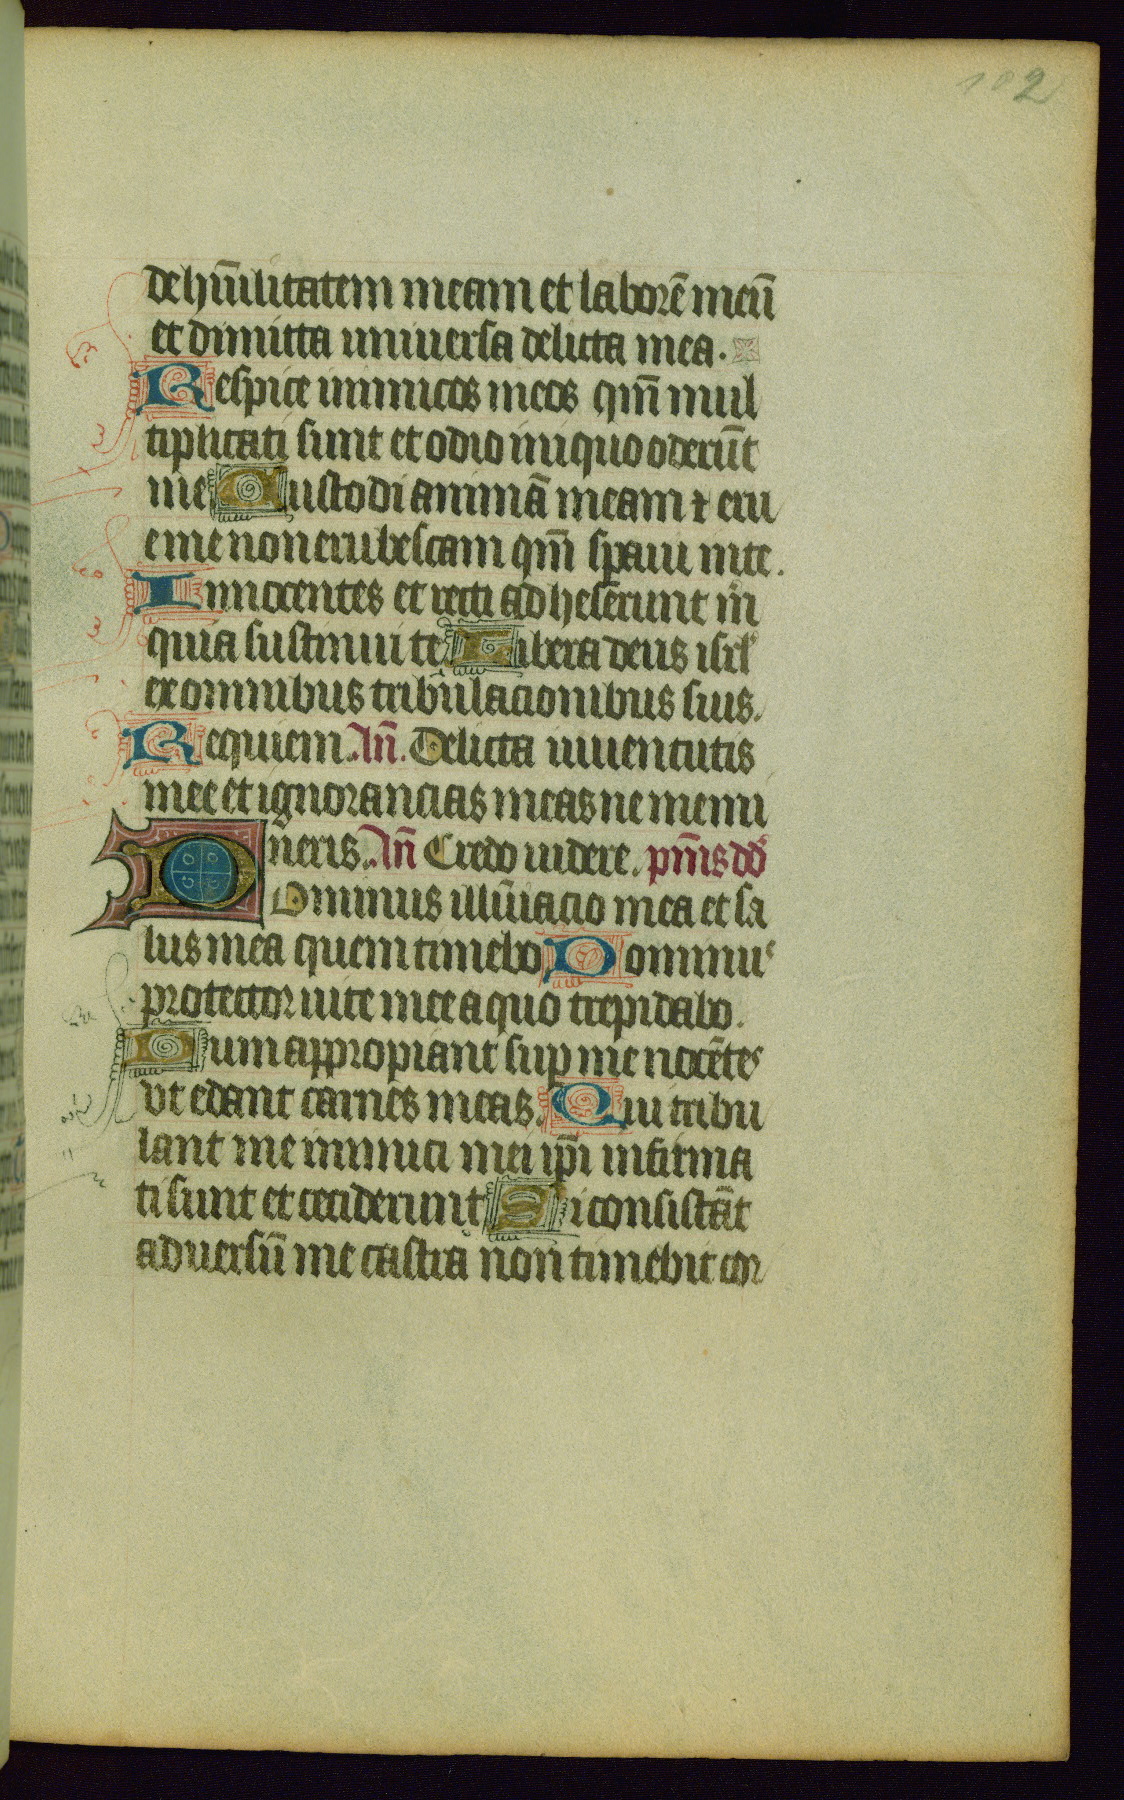 102
de hūilitatem meam et laborē meū
et dimitta universa delicta mea.
Respice inimicos meos qm̄ mul
tiplicati sunt et odio iniquo oderūt
me Custodi animā meam ⁊ eru
e me non erubescam qm̄ speraui inte.
Innocentes et recti adheserunt m̄
quia sustinui te Libera deus isrl'
ex omnibus tribulacionibus suis.
Requiem. An̄. Delicta iuuentutis
mee et ignorancias meas ne memi
neris. An̄ Credo uidere. pm̄s dd
Dominus illūiacio mea et sa
lus mea quem timebo Dominus
protector uite mee a quo trepidabo.
Dum appropiant sup me nocētes
vt edant carnes meas. Qui tribu
lant me inimici mei ip̄i infirma
ti sunt et ceciderunt Si consistāt
aduersū me castra non timebit cor